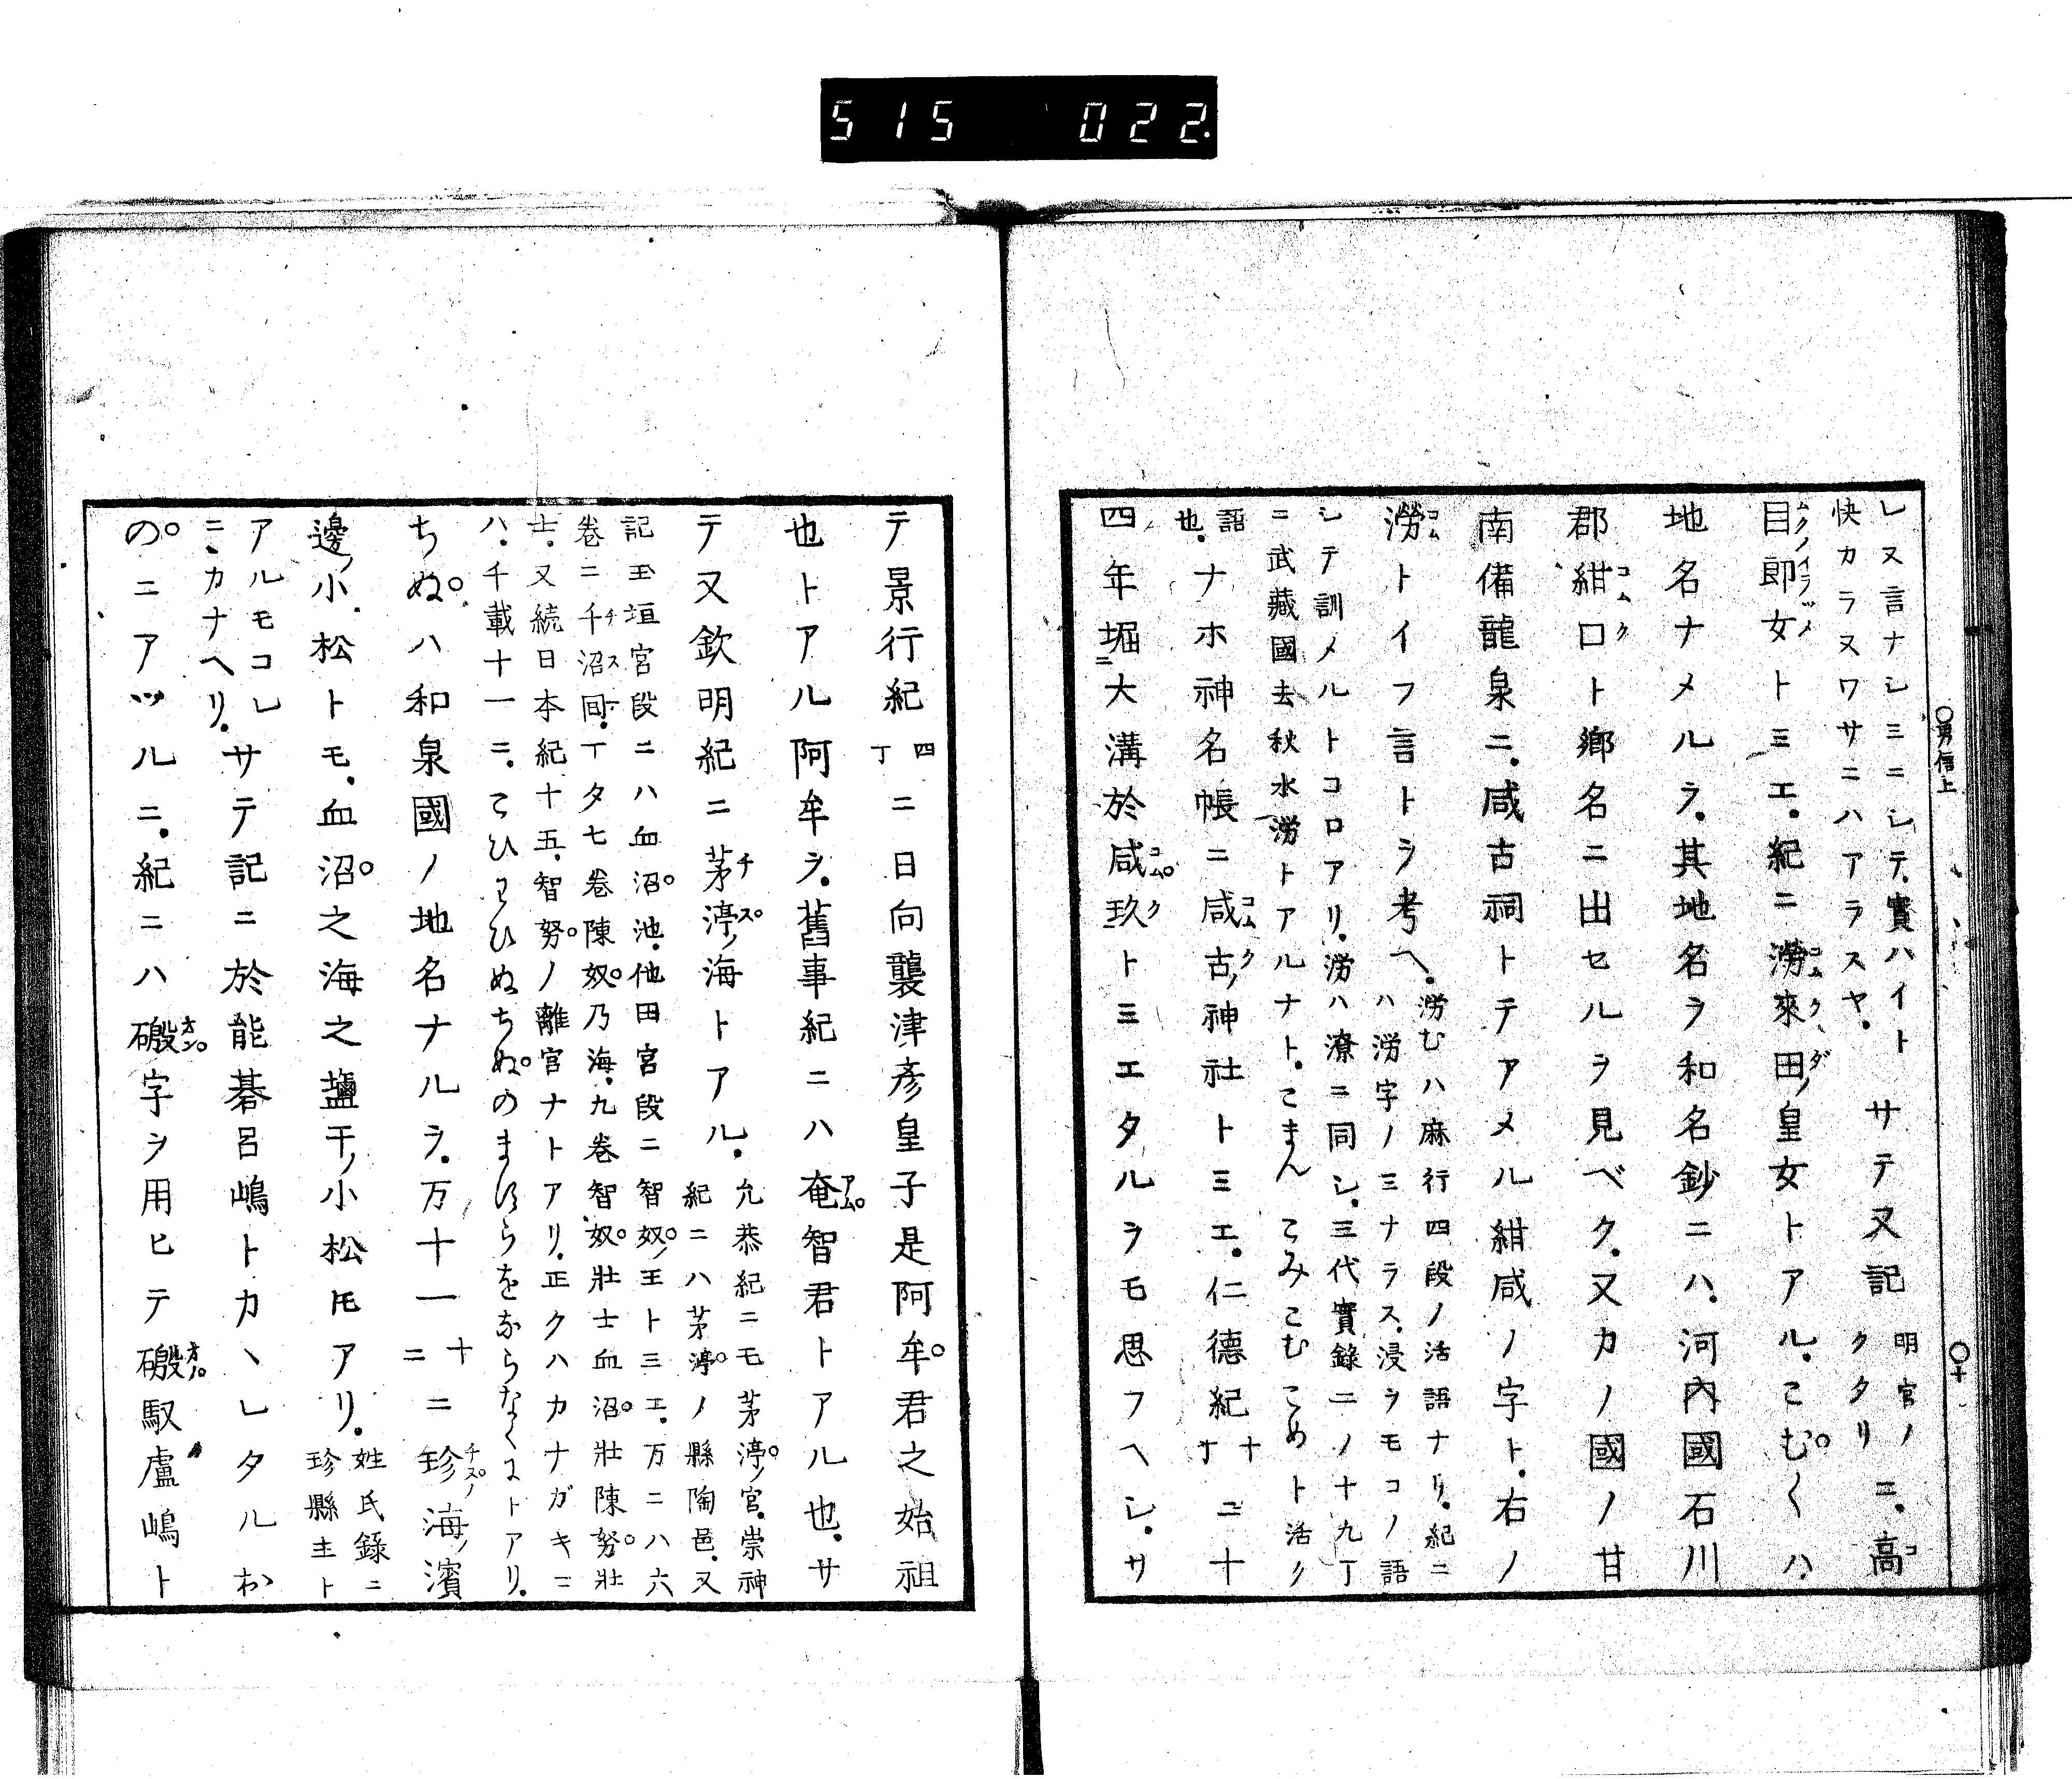 515 022
○男信上
○十
レヌ言ナレミニレテ、實ハイト
快カラヌワサニハアラスヤ
サテ又記
明宮ノ
クタリ
ニ、高コ
目ムクノ郎イラ女ツメトミエ、紀ニ澇コム來ク田ダノ皇女トアル、こむくハ、
地名ナメルヲ、其地名ヲ和名鈔ニハ、河內國石川
郡紺コム口クト鄕名ニ出セルヲ見ベク、又カノ國ノ甘
南備龍泉ニ、咸古祠トテアメル紺咸ノ字ト、右ノ
澇コムトイフ言トヲ考ヘ、
澇むハ麻行四段ノ活語ナリ、紀ニ
ハ澇字ノミナラス、浸ヲモコノ語
シテ訓メルトコロアリ、澇ハ潦ニ同シ、三代實錄ニノ十九丁
ニ武藏國去秋水澇トアルナト、こまん こみ こむ こめト活ク
語
也、
ナホ神名帳ニ咸コム古クノ神社トミエ、仁德紀
十
丁
ニ十
四年堀ニ大溝於咸コム玖クトミエタルヲモ思フヘシ、サ
テ景行紀
四
丁
ニ日向襲津彥皇子是阿牟君之始祖
也トアル阿牟ヲ、舊事紀ニハ奄アム智君トアル也、サ
テ又欽明紀ニ茅チ渟ヌノ海トアル、
允恭紀ニモ茅渟ノ宮、崇神
紀ニハ茅渟ノ縣陶邑、又
記玉垣宮段ニハ血沼池、他田宮段ニ智奴ノ王トミエ、万ニハ六
卷ニ千チ沼ヌ囬、丅タ七卷陳奴乃海、九卷智奴壯士血沼壯陳努壯
士、又続日本紀十五、智努ノ離宮ナトアリ、正クハカナガキニ
ハ、千載十一ニ、こひわひぬちぬのますらをならなくにトアリ、
ちぬハ和泉國ノ地名ナルヲ、万十一
十
ニ
ニ珍チヌノ海ノ濱
邊ノ小松トモ、血沼之海之鹽干ノ小松トモアリ、
姓氏錄ニ
珍縣主ト
アルモコレ
ニ、カナヘリ、
サテ記ニ於能碁呂嶋トカヽレタルお
のニアッルニ、紀ニハ磤オン字ヲ用ヒテ磤オノ馭盧嶋ト